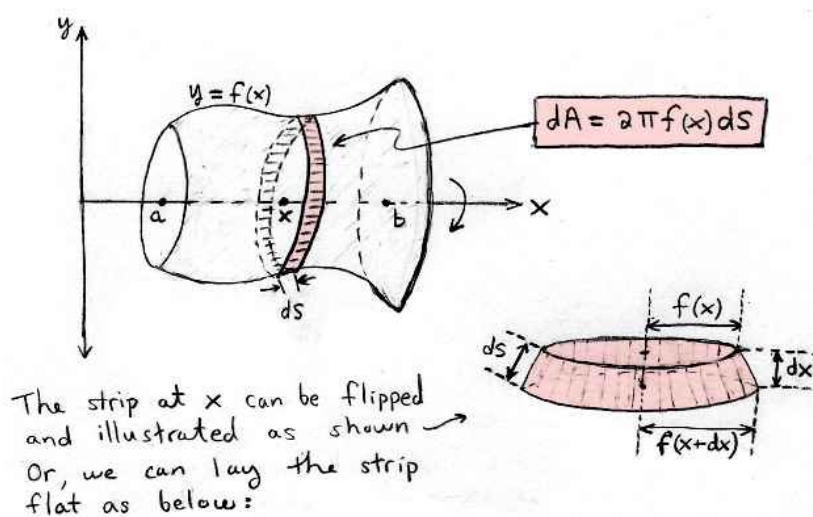 y
y = f(x)
dA = 2πf(x)ds
a
x
b
x
ds
f(x)
ds
dx
f(x+dx)
The strip at x can be flipped
and illustrated as shown
Or, we can lay the strip
flat as below: